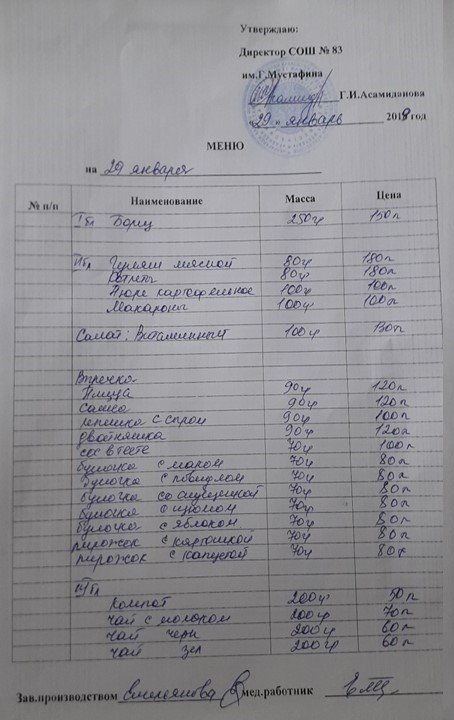 Утверждаю:
Директор СОШ № 83
им.Г.Мустафина
Г.И.Асамиданова
«29» январь 2019 год
МЕНЮ
на 29 января
№ п/п Наименование Масса Цена
I бл Борщ 250гр 150т
II бл Гуляш мясной 80гр 180т
Котлеты 80гр 180т
Пюре картофельное 100гр 100т
Макароны 100гр 100т
Салат: Витаминный 100гр 130т
Выпечка
Пицца 90гр 120т
Самса 90гр 120т
лепешка с сыром 90гр 100т
двойняшка 90гр 120т
сос в тесте 70гр 100т
булочка с маком 70гр 80т
булочка с повидлом 70гр 80т
булочка со сгущенкой 70гр 80т
булочка с изюмом 70гр 80т
булочка с яблоком 70гр 80т
пирожок с картошкой 70гр 80т
пирожок с капустой 70гр 80т
III бл
Компот 200гр 50т
чай с молоком 200гр 70т
чай черн 200гр 60т
чай зел 200гр 60т
Зав.производством мед.работник